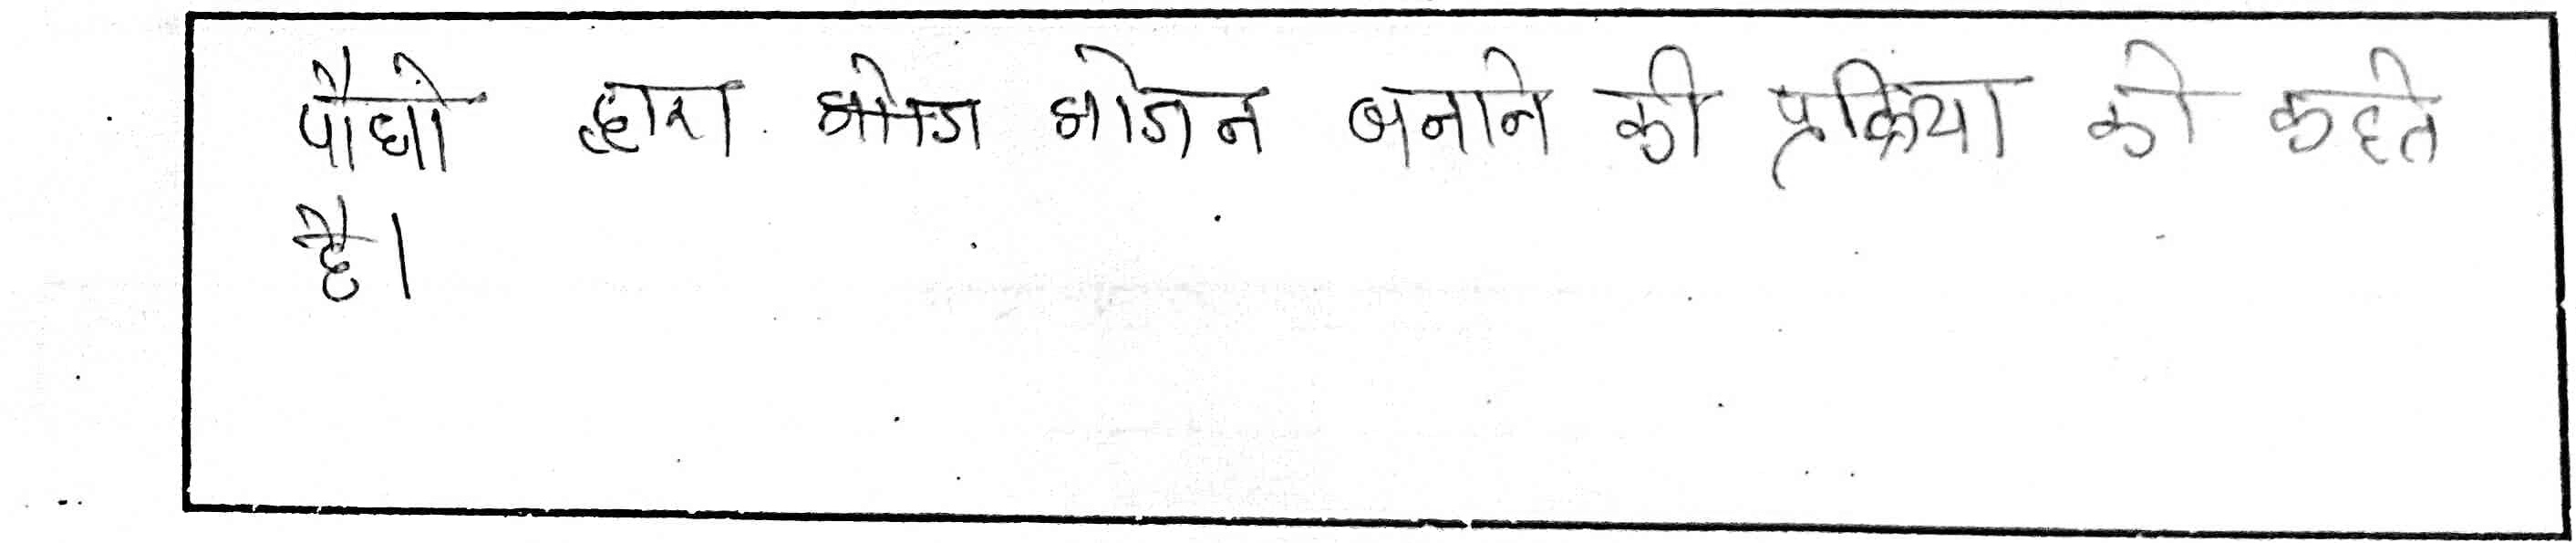 पौधों द्वारा भोजन बनाने की प्रक्रिया को कहते
है।